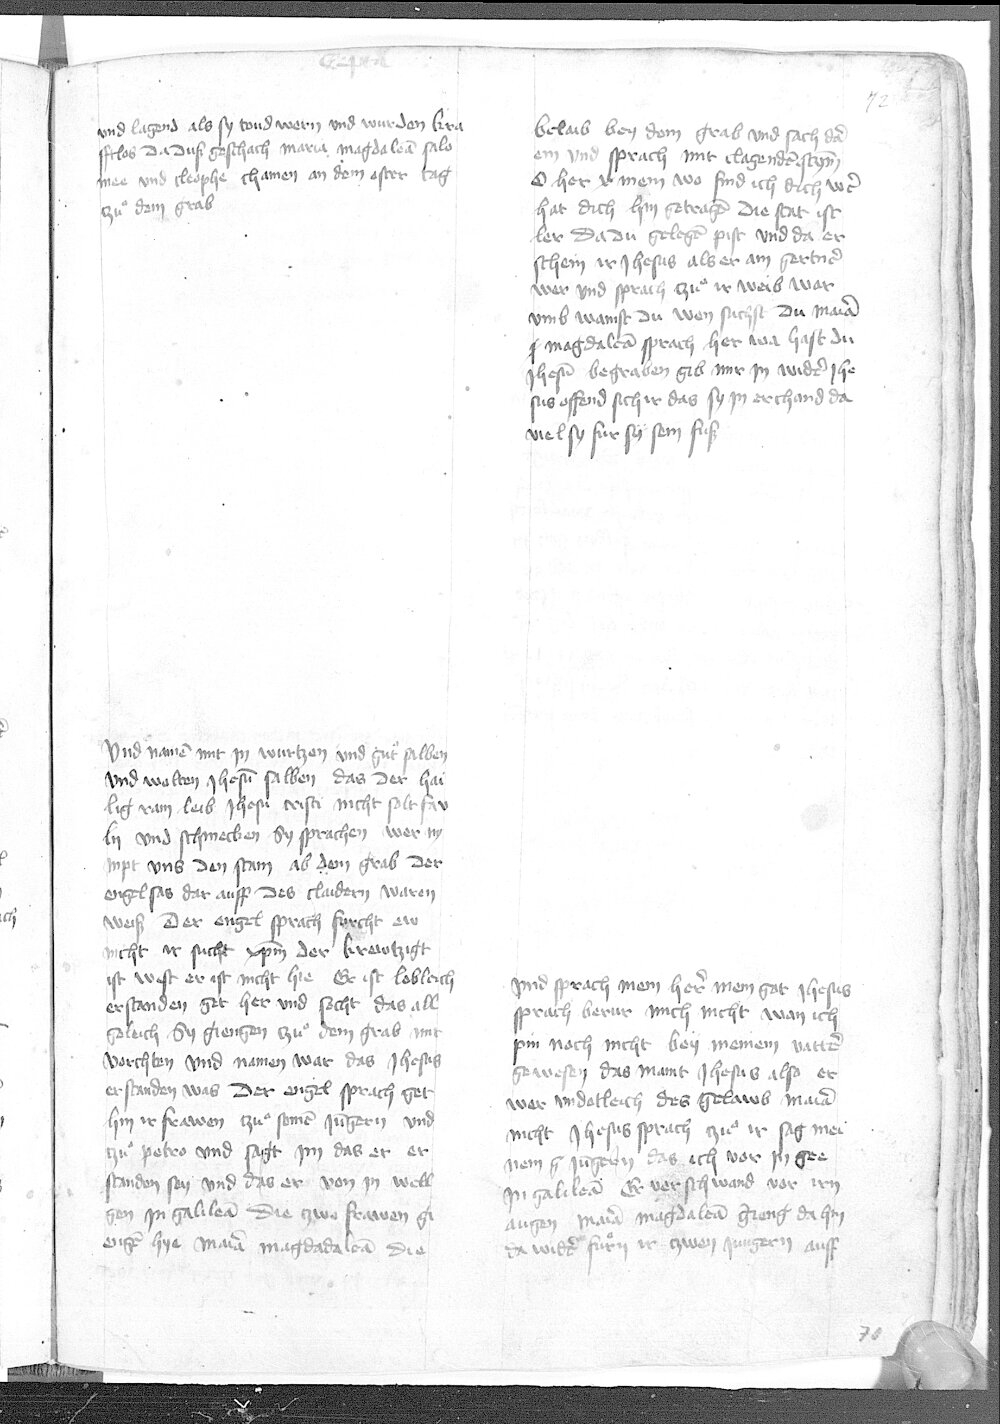 Capitel
72
und lagend als sy toud wern und wurden kra
fftlos Da Duss geschach maria magdaleā salo
mee und cleophe chamen an dem oster tag
czuͦ dem grab
Und namē mit in wurtzen und gutͦ salben
und wolten Jhesū salben das Der hai
lig rain leib Jhesu cristi nicht solt faw
ln und schmecken Sy sprachen wer in
impt uns Den stain ab Dem grab Der
engel sas dar auff Des claidern waren
weiß Der engel sprach furcht ew
nicht ir sucht xpm̄ der krewtzigt
ist west er ist nicht hie Er ist lobleich
erstanden get her und secht das all
geleich Sy giengen czuͦ dem grab mit
vorchten und namen war das Jhesus
erstanden was Der engel sprach get
hin ir frawen czuͦ seinē Jūgern und
czuͦ petro und sagt im das er er
standen sey und das er von in well
gen in galileā Die czwo frawen gi
engē hye mariā magdadaleā Die
belaib bey dem grab und sach da
ein und sprach mit clagender stym̄
O her xp̄ mein wo find ich dich wer
hat dich hin getragē Die stat ist
ler Da Du gelegē pist und da er
schein ir Jhesus als er ain gertner
wer und sprach czuͦ ir weib war
umb wainst Du wen suchst Du mariā
magdaleā sprach her wa hast du
Jhesū begraben gib mir in wider Jhe
sus offend sich ir das sy in erchand da
viel sy fur sy sein fuß
Und sprach mein her mein got Jhesus
sprach berur mich nicht wan ich
pin noch nicht bey meinem vatter
gewesen das maint Jhesus also er
wer undotleich des gelawb mariā
nicht Jhesus sprach czuͦ ir sag mei
nem Jūgern das ich vor in gee
in galileā Er verschwand vor irn
augen mariā magdaleā gieng da hin
da wider furn ir czwen Jungern auff
70